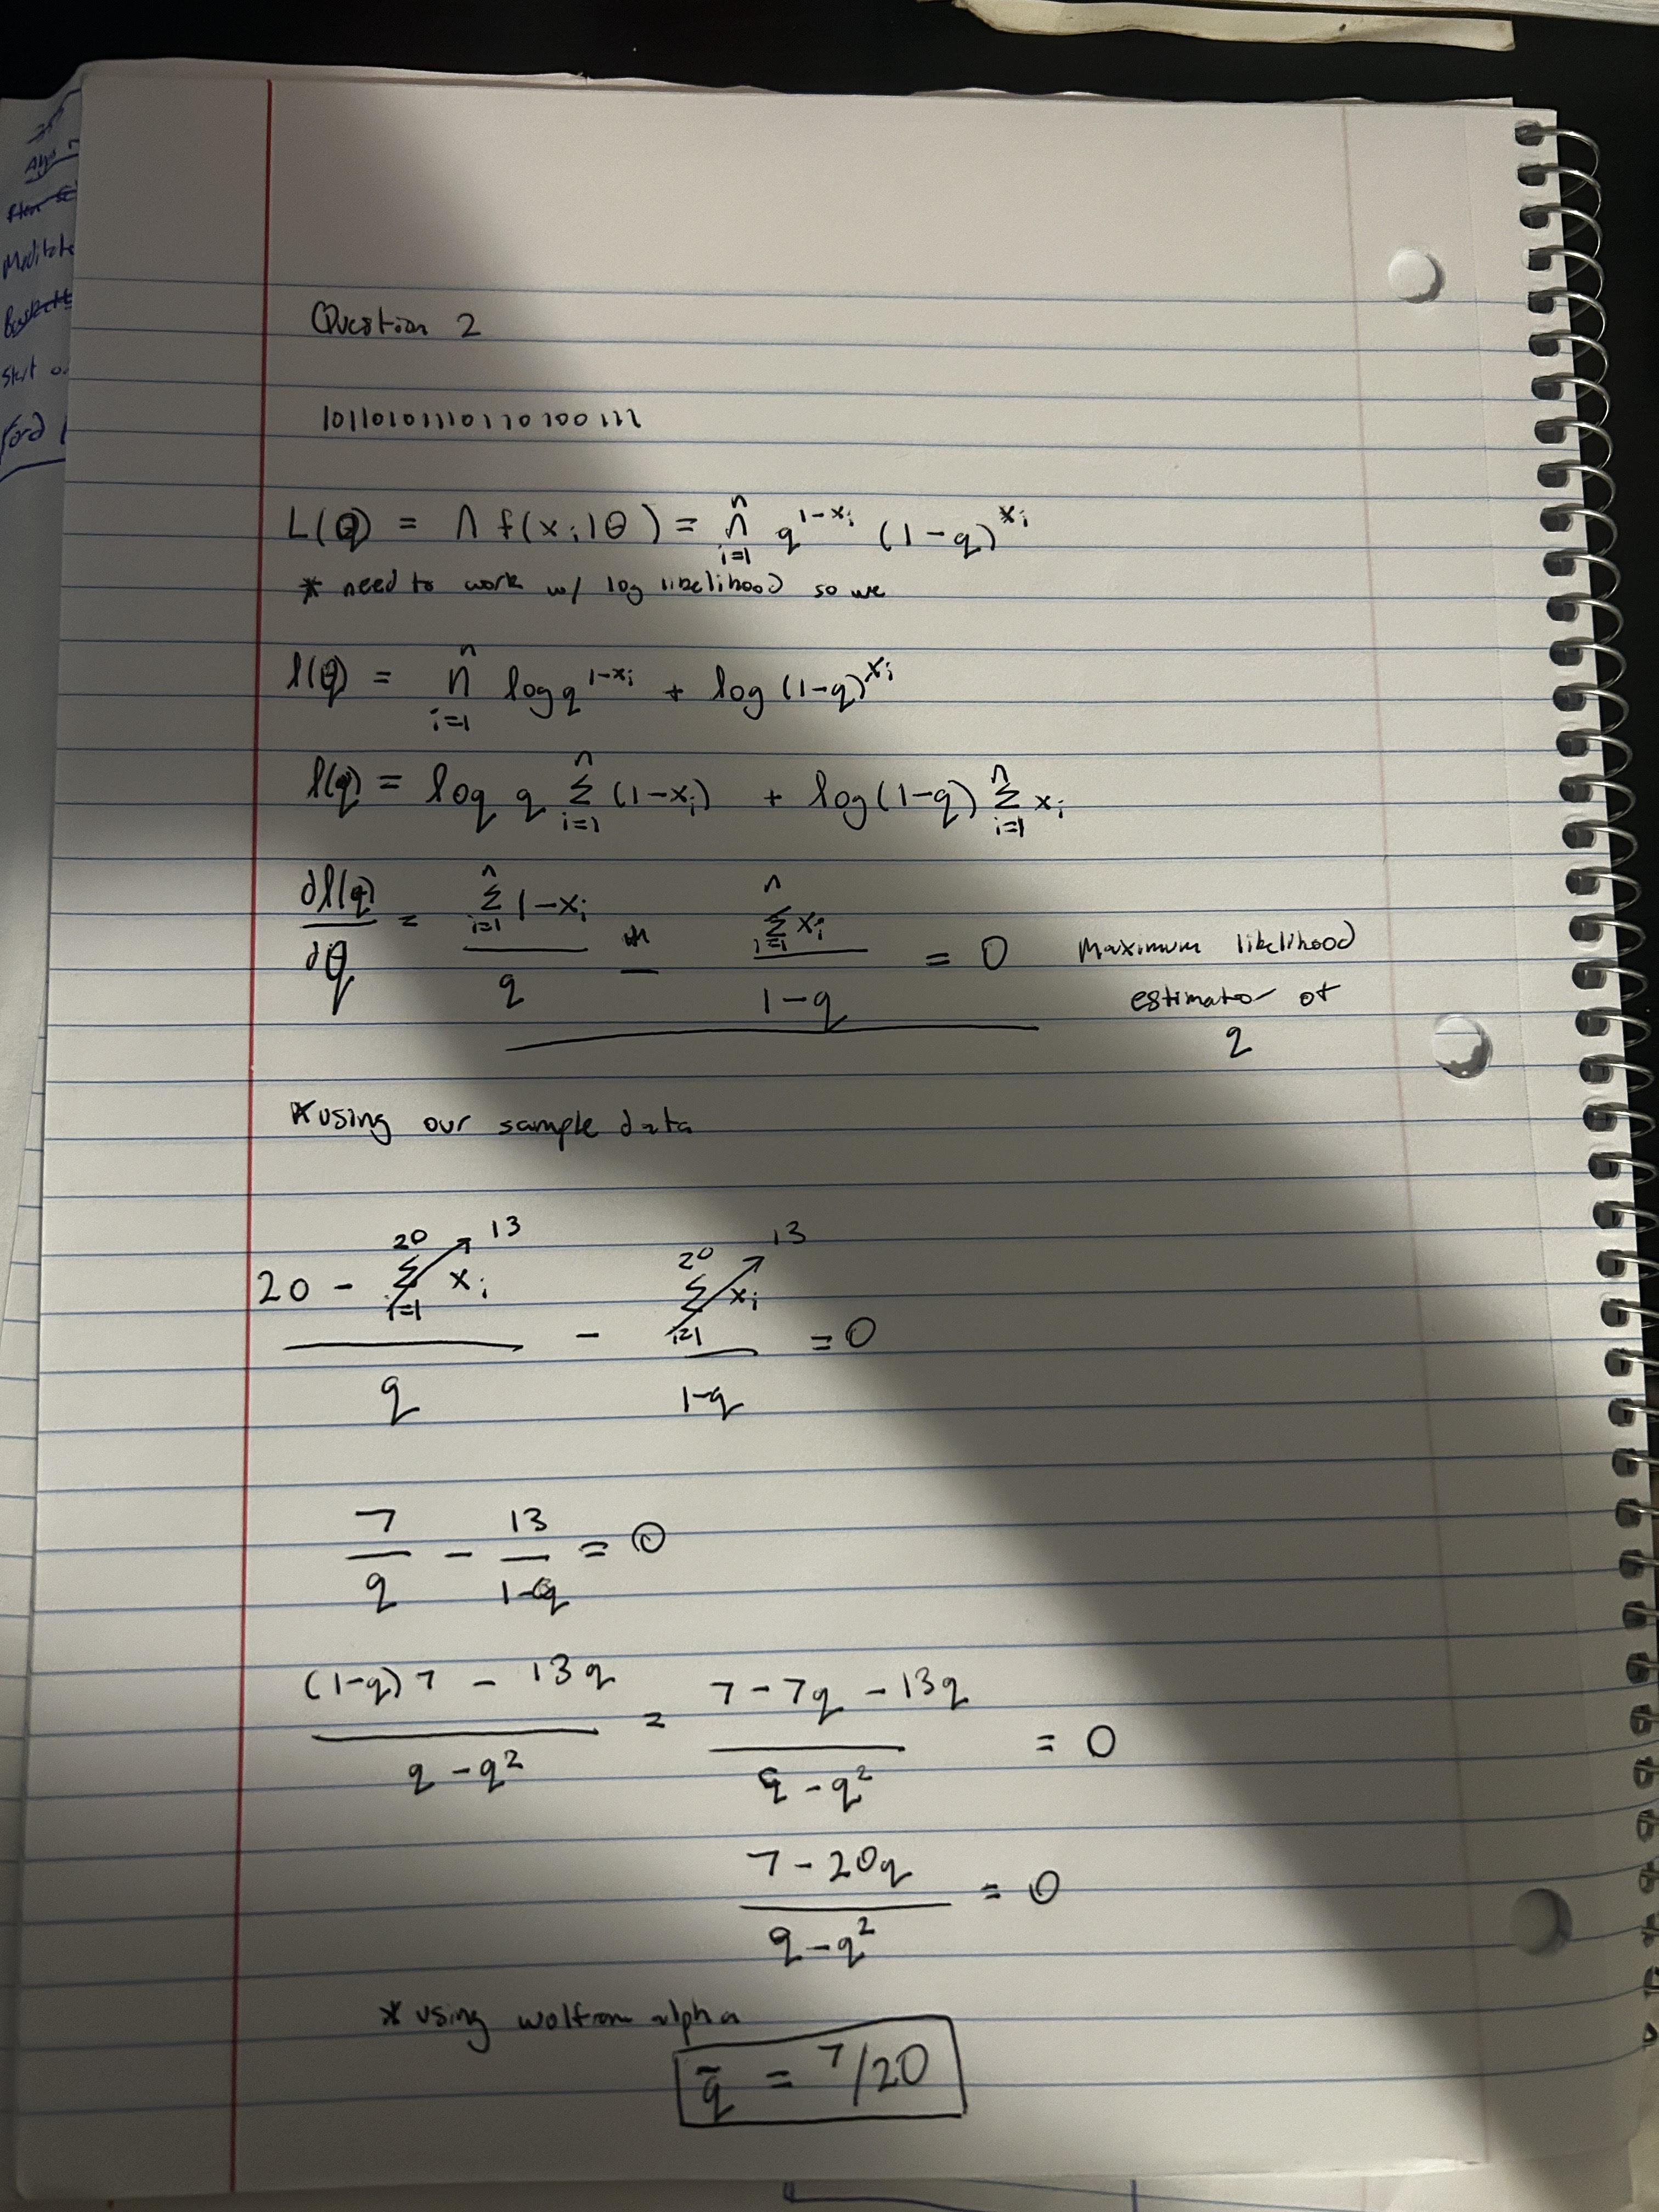 Algo
Meditate
Start o
Ford
Question 2
10110101110110100111
L(θ) = Π f(x_i|θ) = Π_{i=1}^{n} q^{1-x_i} (1-q)^{x_i}
* need to work w/ log likelihood so we
l(θ) = Π_{i=1}^{n} log q^{1-x_i} + log (1-q)^{x_i}
l(q) = log q Σ_{i=1}^{n} (1-x_i) + log(1-q) Σ_{i=1}^{n} x_i
dl(q)/dq = (Σ_{i=1}^{n} 1-x_i)/q - (Σ_{i=1}^{n} x_i)/(1-q) = 0 Maximum likelihood
estimator of
q
*using our sample data
(20 - Σ_{i=1}^{20} x_i → 13)/q - (Σ_{i=1}^{20} x_i → 13)/(1-q) = 0
7/q - 13/(1-q) = 0
((1-q)7 - 13q)/(q-q²) = (7-7q-13q)/(q-q²) = 0
(7-20q)/(q-q²) = 0
* using wolfram alpha
q̄ = 7/20